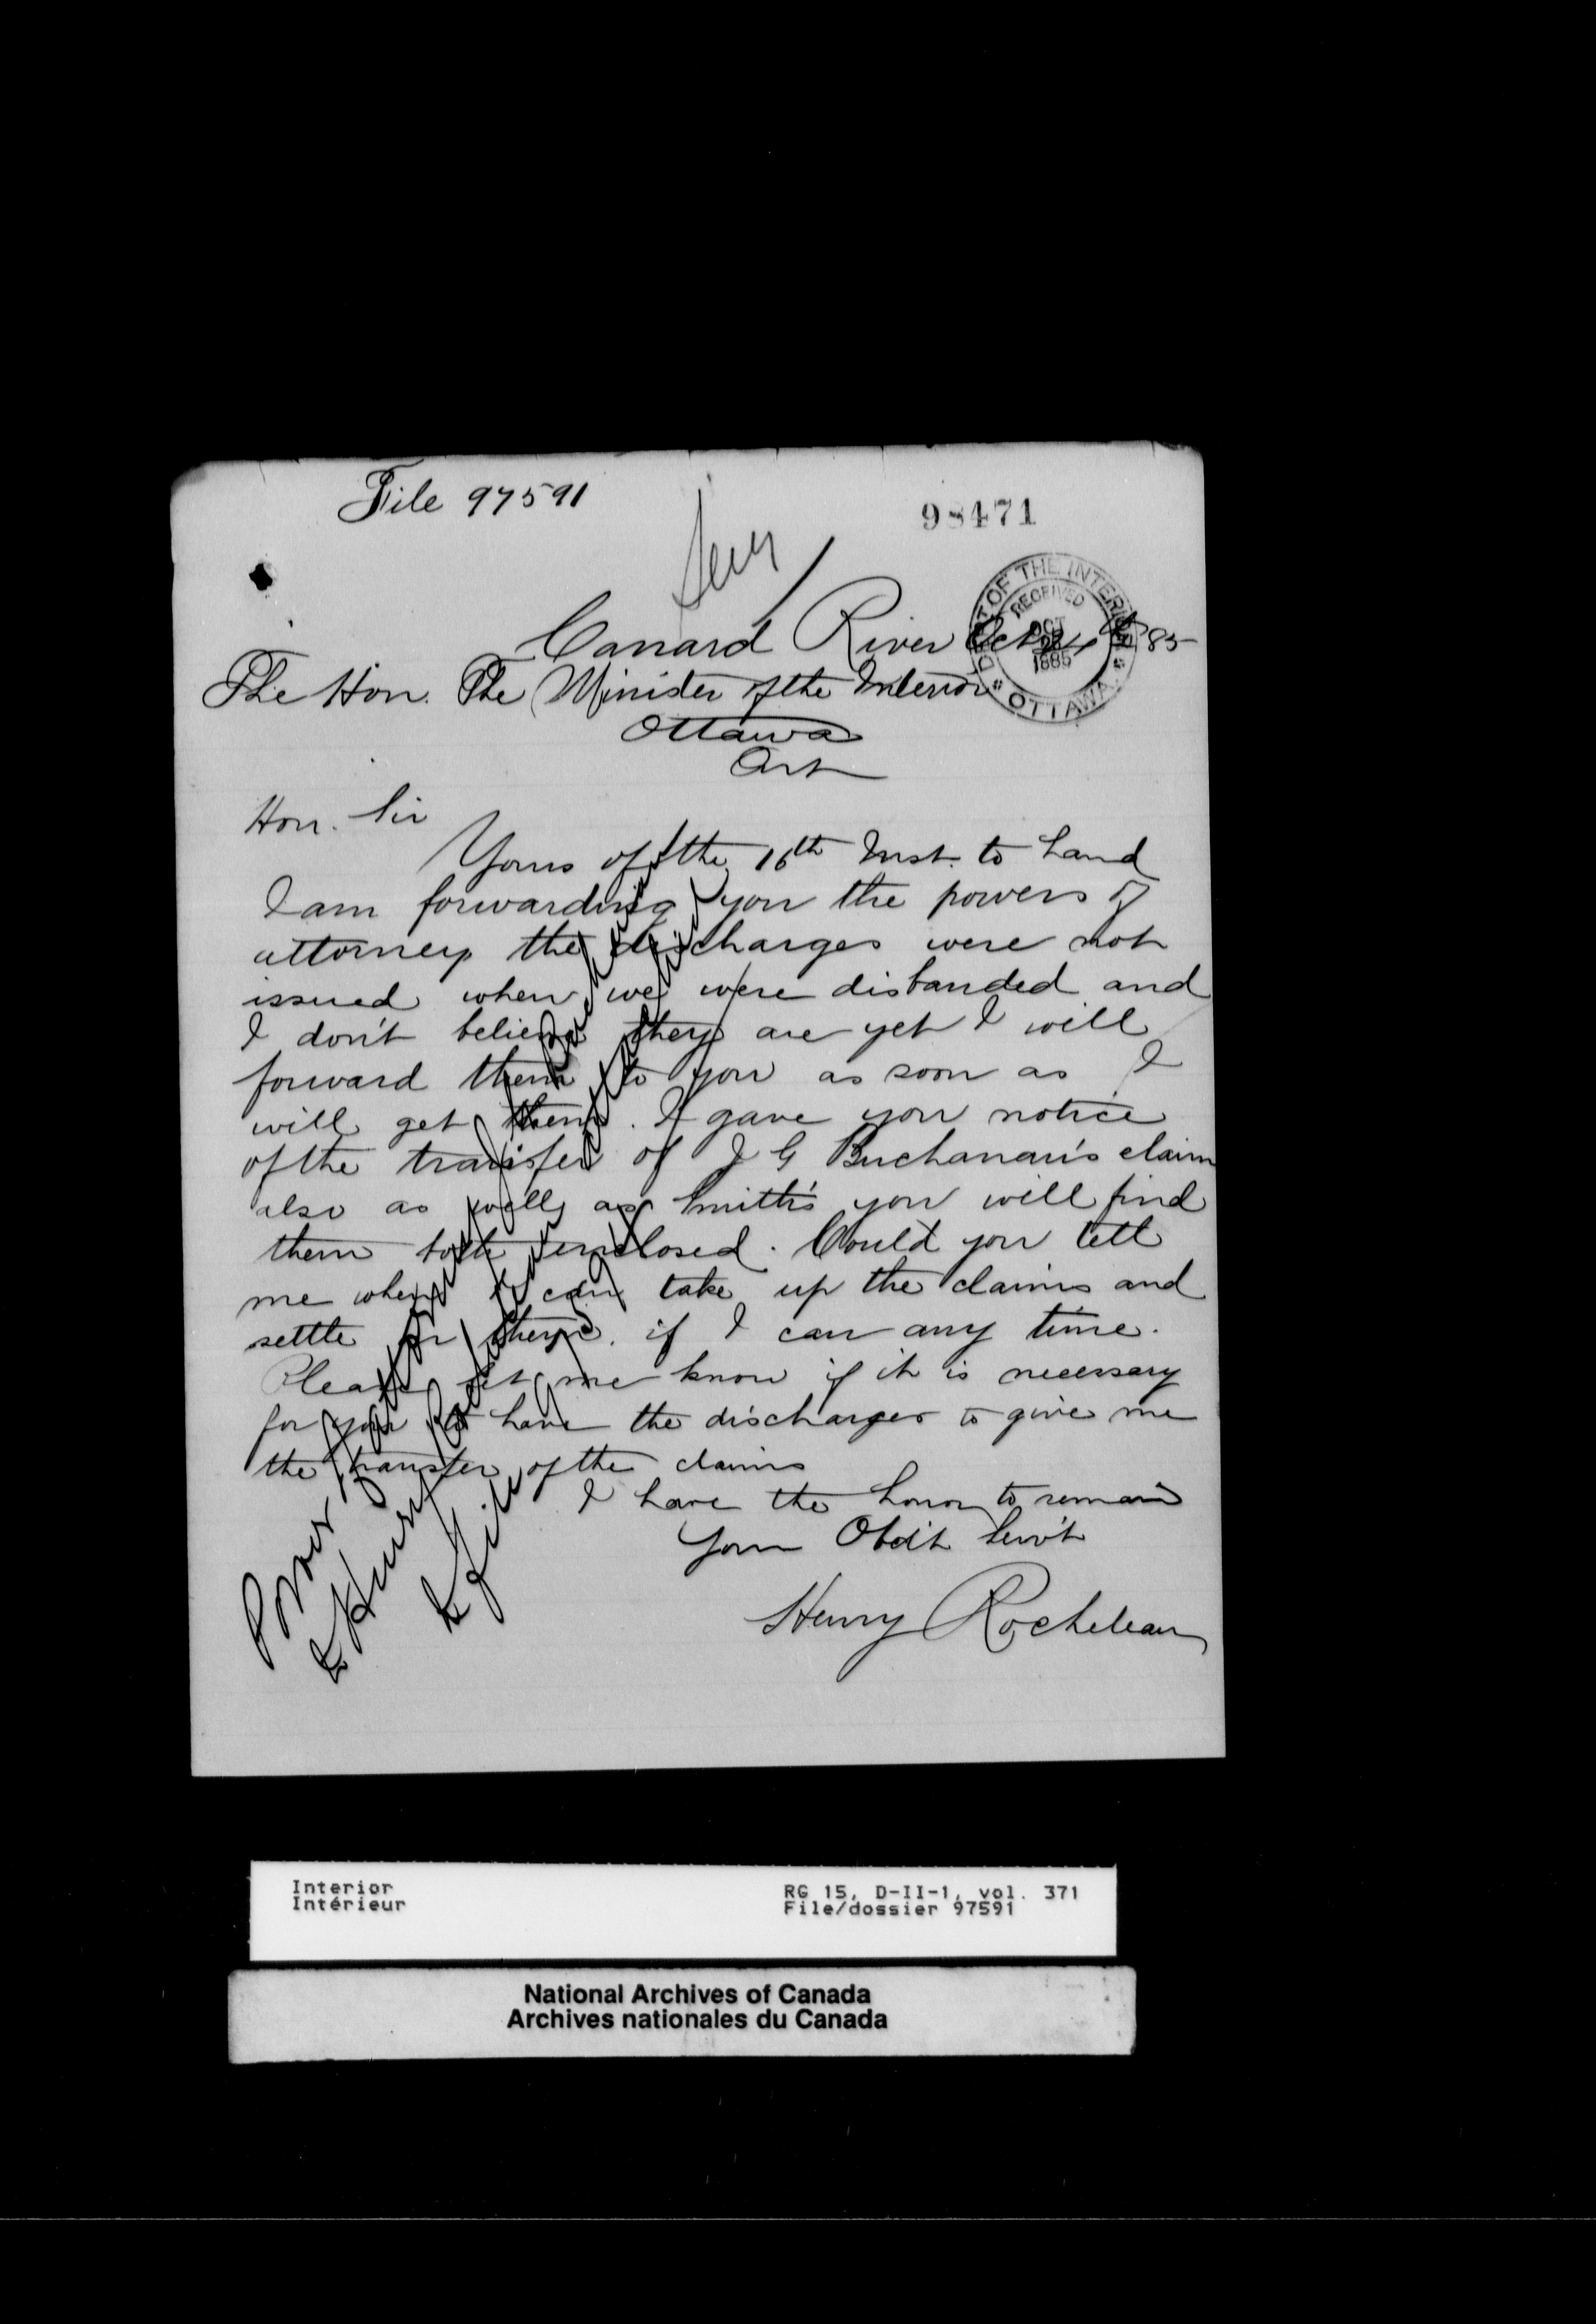 File 97591
98471
DEPT OF THE INTERIOR
RECEIVED
OCT
1885
OTTAWA
Canard River Oct 85
The Hon. The Minister of the Interior
Ottawa
Ont
Hon. Sir
Yours of the 16th Inst. to hand
I am forwarding you the powers of
attorney the discharges were not
issued when we were disbanded and
I don't believe they are yet I will
forward them to you as soon as I
will get them. I gave you notice
of the transfer of J G Buchanan's claim
also as well as Smith's you will find
them both enclosed. Could you tell
me when I can take up the claims and
settle on them, if I can any time.
Please let me know if it is necessary
for you to have the discharges to give me
the transfer of the claims
I have the honor to remain
Your Obd't Serv't
Henry Rocheleau
Power of attorney
to Henry Rocheleau
to file
Interior
Intérieur
RG 15, D-II-1, vol. 371
File/dossier 97591
National Archives of Canada
Archives nationales du Canada